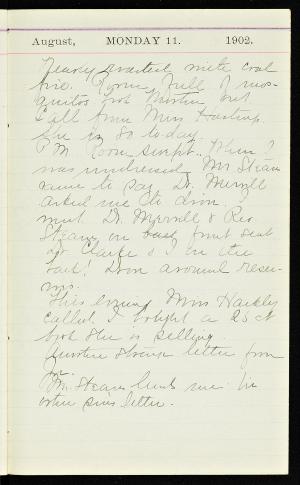 August, MONDAY 11. 1902.
Nearly wasted nute coal
fire. Room full of mos-
quitos
Call from Miss
She is 80 to-day.
P.M. Room swept. When I
was undressed, Mr Stearn
came to say Dr. Merrill
asked me to drive. I
went Dr. Merrill & Rev
Stearn on front seat
& I in the
back! Drove around reser-
voir.
This evening Miss Hackley
called. I bought a 25 ct
book she is selling.
strange letter from
Mr. Stearn lends me his
letter.